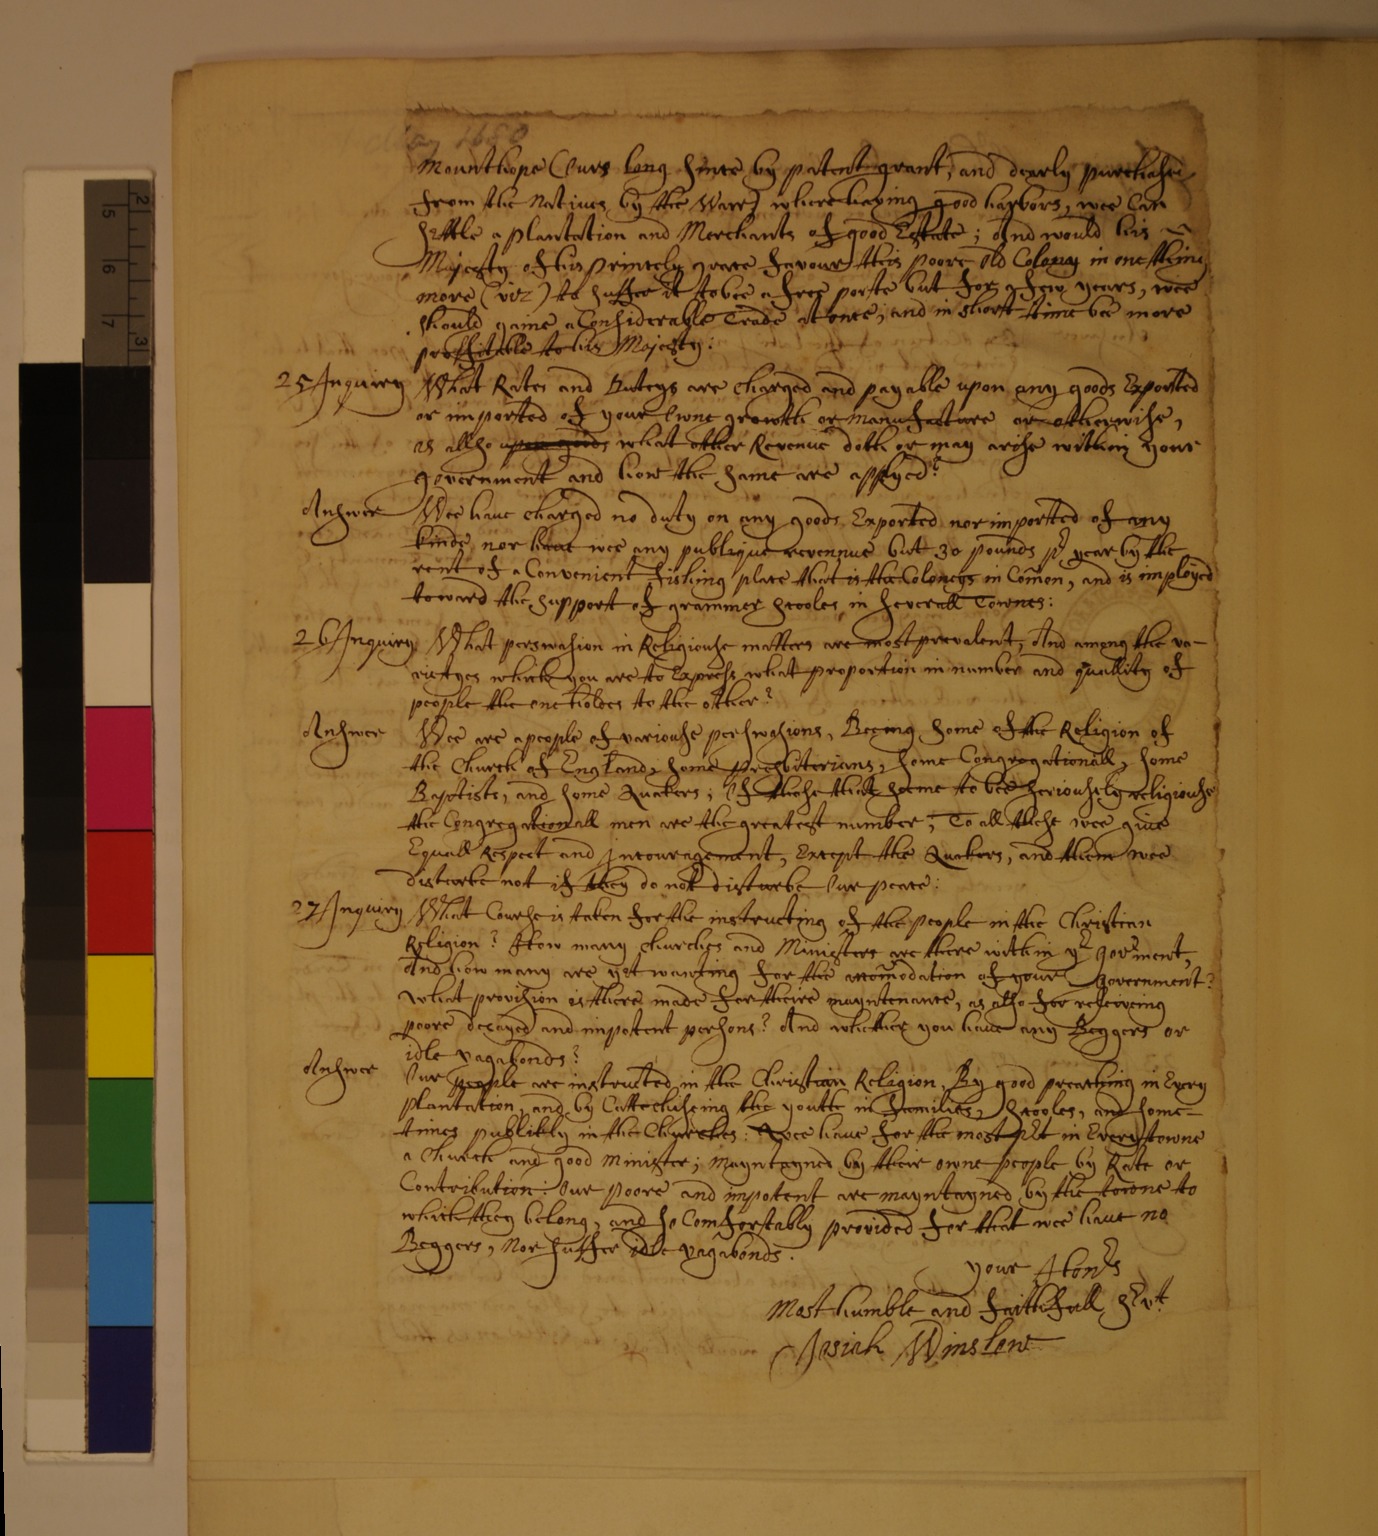 May 1680
Mounthope (Ours long since by patent grant, and dearly purchased
from the Natives by the Warr) where having good harbors, wee Can
settle a plantation and Merchants of good Estate; And would his
Majesty of his princely grace favour this poore Old Colony in one thing
more (viz) to suffer it to bee a free porte but for a few years, wee
should gaine a Considerable Trade at once; and in short time bee more
proffitable to his Majesty:
25 Inquiry What Rates and Duteys are charged and payable upon any goods Exported
or imported of your Owne growth or manufacture or otherwise,
as allso upon goods what other Revenue doth or may arise within your
Government and how the same are applyed?
Answer Wee have charged no duty on any goods Exported nor imported of any
kinde, nor have wee any publique revennue but 30 pounds pr year by the
rent of a Convenient fishing place that is the Coloneys in Comon, and is imployed
toward the support of grammer scooles in severall Townes:
26 Inquiry What perswasion in Religiouse matters are most prevalent, And among the va-
rietyes which you are to Express what proportion in number and quallity of
people the one holdes to the other?
Answer Wee are a people of variouse perswasions, Beeing some of the Religion of
the Church of England, some presbiterians, some Congregationall, some
Baptists, and some Quakers; Of those that seeme to bee seriousely religiouse
the Congregationall men are the greatest number; To all these wee give
Equall Respect and Incouragement, Except the Quakers, and them wee
disturbe not if they do not disturbe Our peace:
27 Inquiry What Course is taken for the instructing of the people in the Christian
Religion? How many churches and Ministers are there within yr Goverment,
And how many are yet wanting for the accomodation of your Government?
What provision is there made for theire mayntenance, as also for releeving
poore decayed and impotent persons? And whether you have any Beggers or
idle vagabonds?
Answer Our people are instructed in the Christian Religion, By good preaching in Every
plantation, and by Cattechiseing the youth in families, scooles, and some-
times publikly in the Churches: Wee have for the most prt in Every towne
a Church and good Minister; mayntayned by their owne people by Rate or
Contribution: Our poore and impotent are mayntayned by the towne to
which they belong, and so Comforstably provided for that wee have no
Beggers, Nor suffer idle vagabonds.
your Honrs
Most humble and faithfull Servt
Josiah Winslow